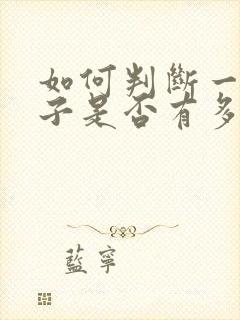 如何判斷一
子是否有多
藍寧